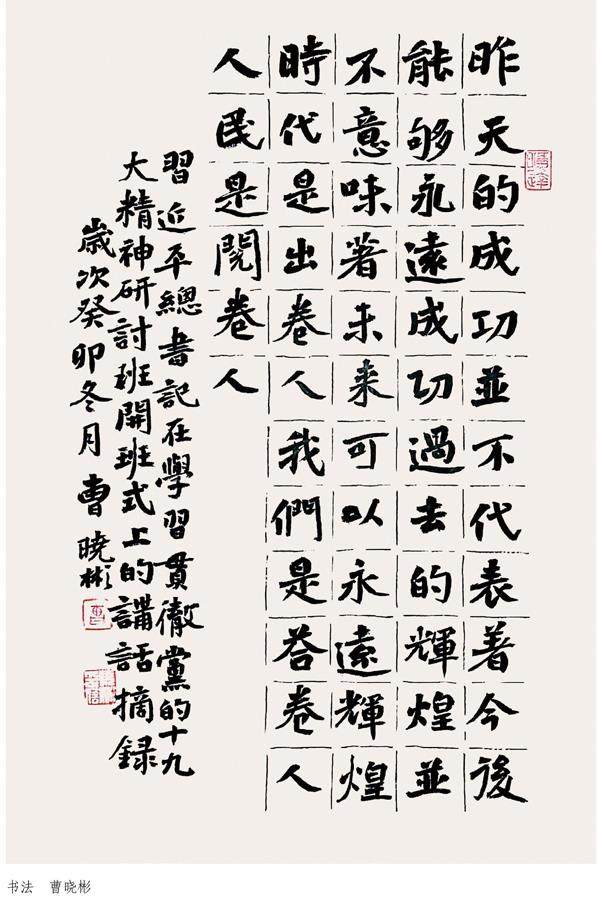 昨天的成功並不代表着今後
能够永遠成功過去的輝煌並
不意味著未来可以永遠輝煌
時代是出卷人我們是荅卷人
人民是閲卷人
習近平總書記在學習貫徹黨的十九
大精神研討班開班式上的講話摘録
歲次癸卯冬月曹曉彬
书法 曹晓彬